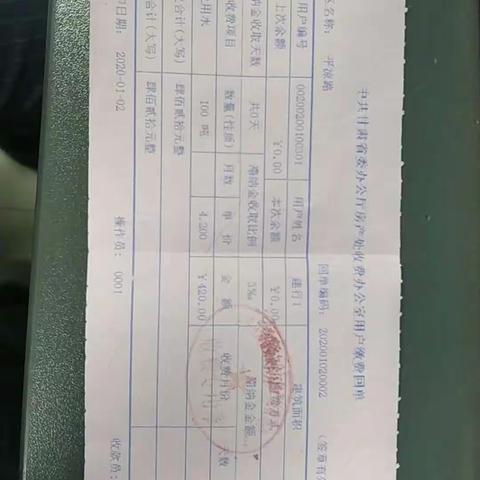 中共甘肃省委办公厅房产处收费办公室用户缴费回单
区名称: 平凉路 回单编码: 202001020002 (签章有效
用户编号 00200200100301 用户姓名 建行1 建筑面积
上次余额 ¥0.00 本次余额 ¥0.00
滞纳金收取天数 共0天 滞纳金收取比例 5‰ 滞纳金金额
收费项目 数量(性质) 月数 单价 金额 收费月份 天数
用水 100 吨 4.200 ¥420.00
合计(大写) 肆佰贰拾元整
合计(大写) 肆佰贰拾元整
日期: 2020-01-02 操作员: 0001 收款员: